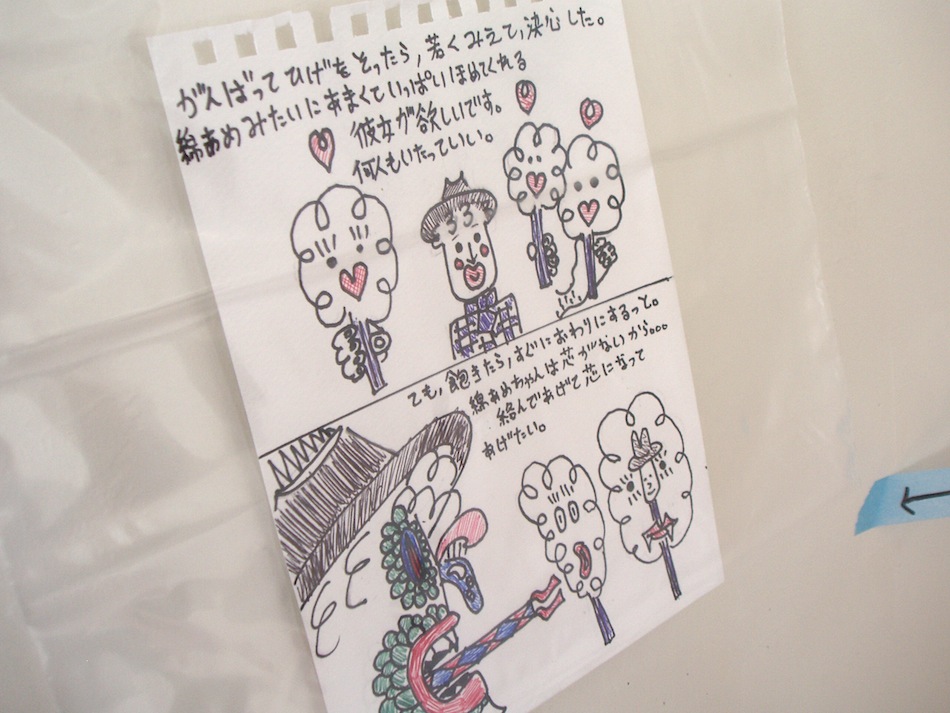 がんばってひげをそったら,若くみえて,決心した。
綿あめみたいにあまくていっぱいほめてくれる
彼女が欲しいです。
何人もいたっていい。
でも,飽きたら,すぐにおわりにするっと。
綿あめちゃんは芯がないから。。。
絡んであげて芯になって
あげたい。